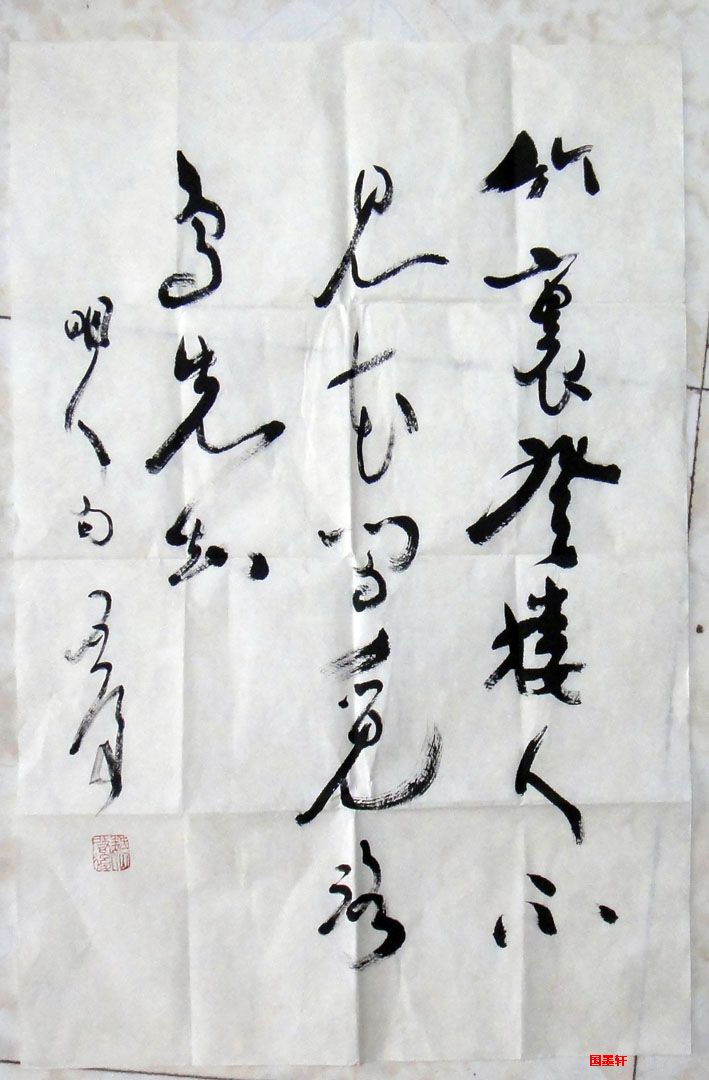 竹裏登樓人不
見花間覓路
鳥先知
明人句
国墨轩